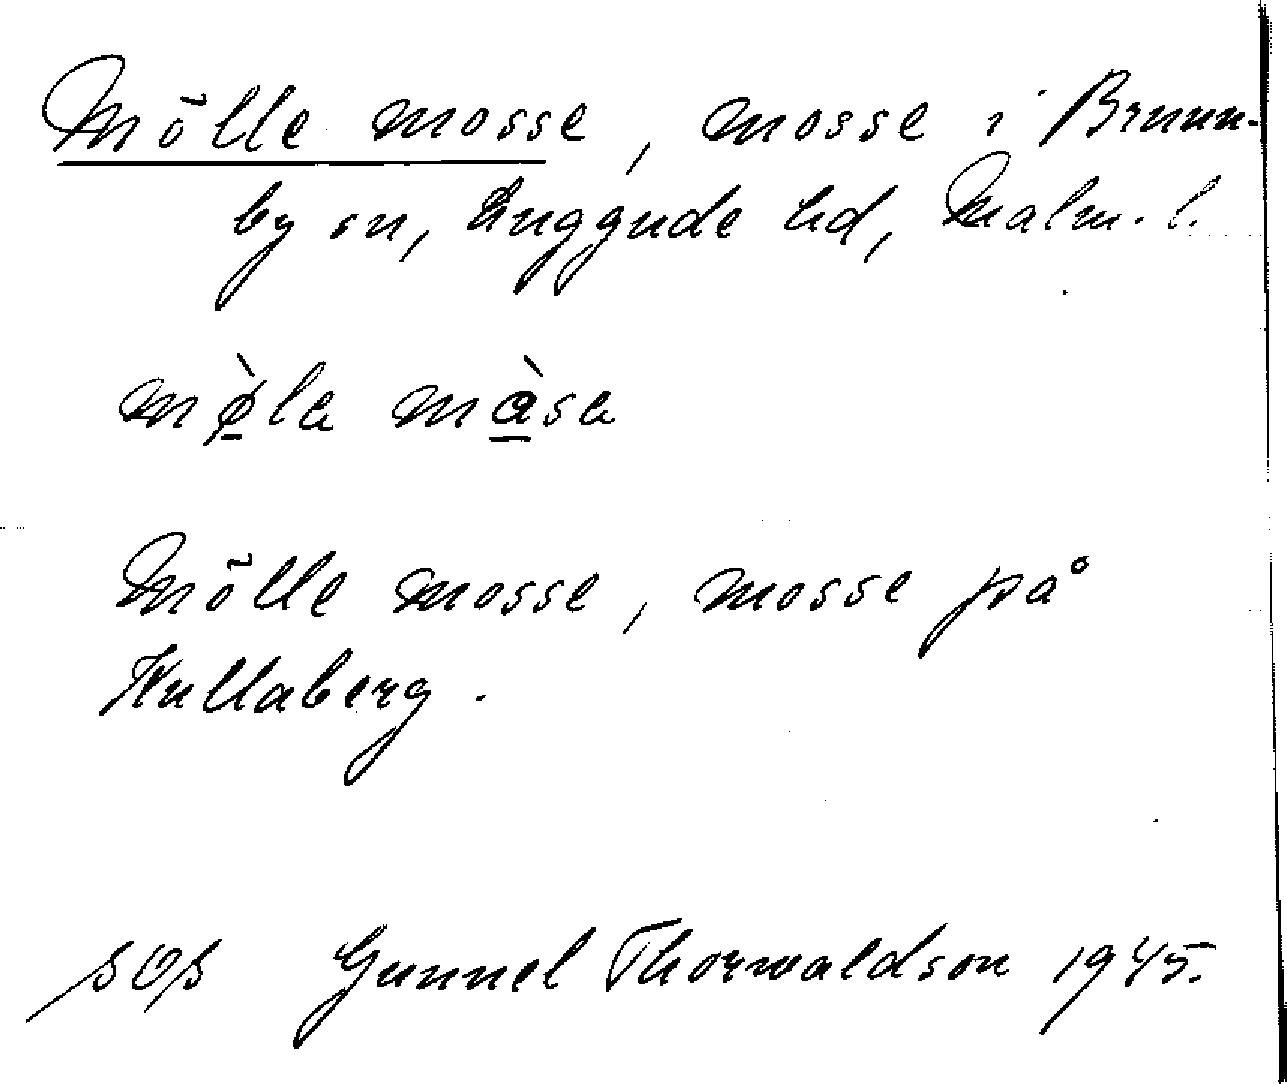 Mölle mosse, mosse i Brunn-
by sn, Luggude hd, Malm. l.
mø̀la màsa
Mölle mosse, mosse på
Kullaberg.
sOs Gunnel Thorwaldson 1945.